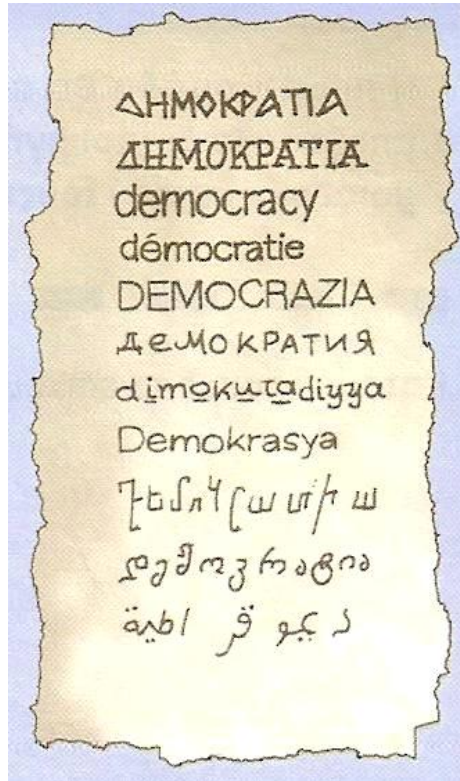 ΔΗΜΟΚΡΑΤΙΑ
ΔΗΜΟΚΡΑΤΙΑ
democracy
démocratie
DEMOCRAZIA
ДеМОКРАТИЯ
di̲mo̲ku̲ra̲diyya
Demokrasya
Դեմոկրատիա
დემოკრატია
د يمو قر اطية